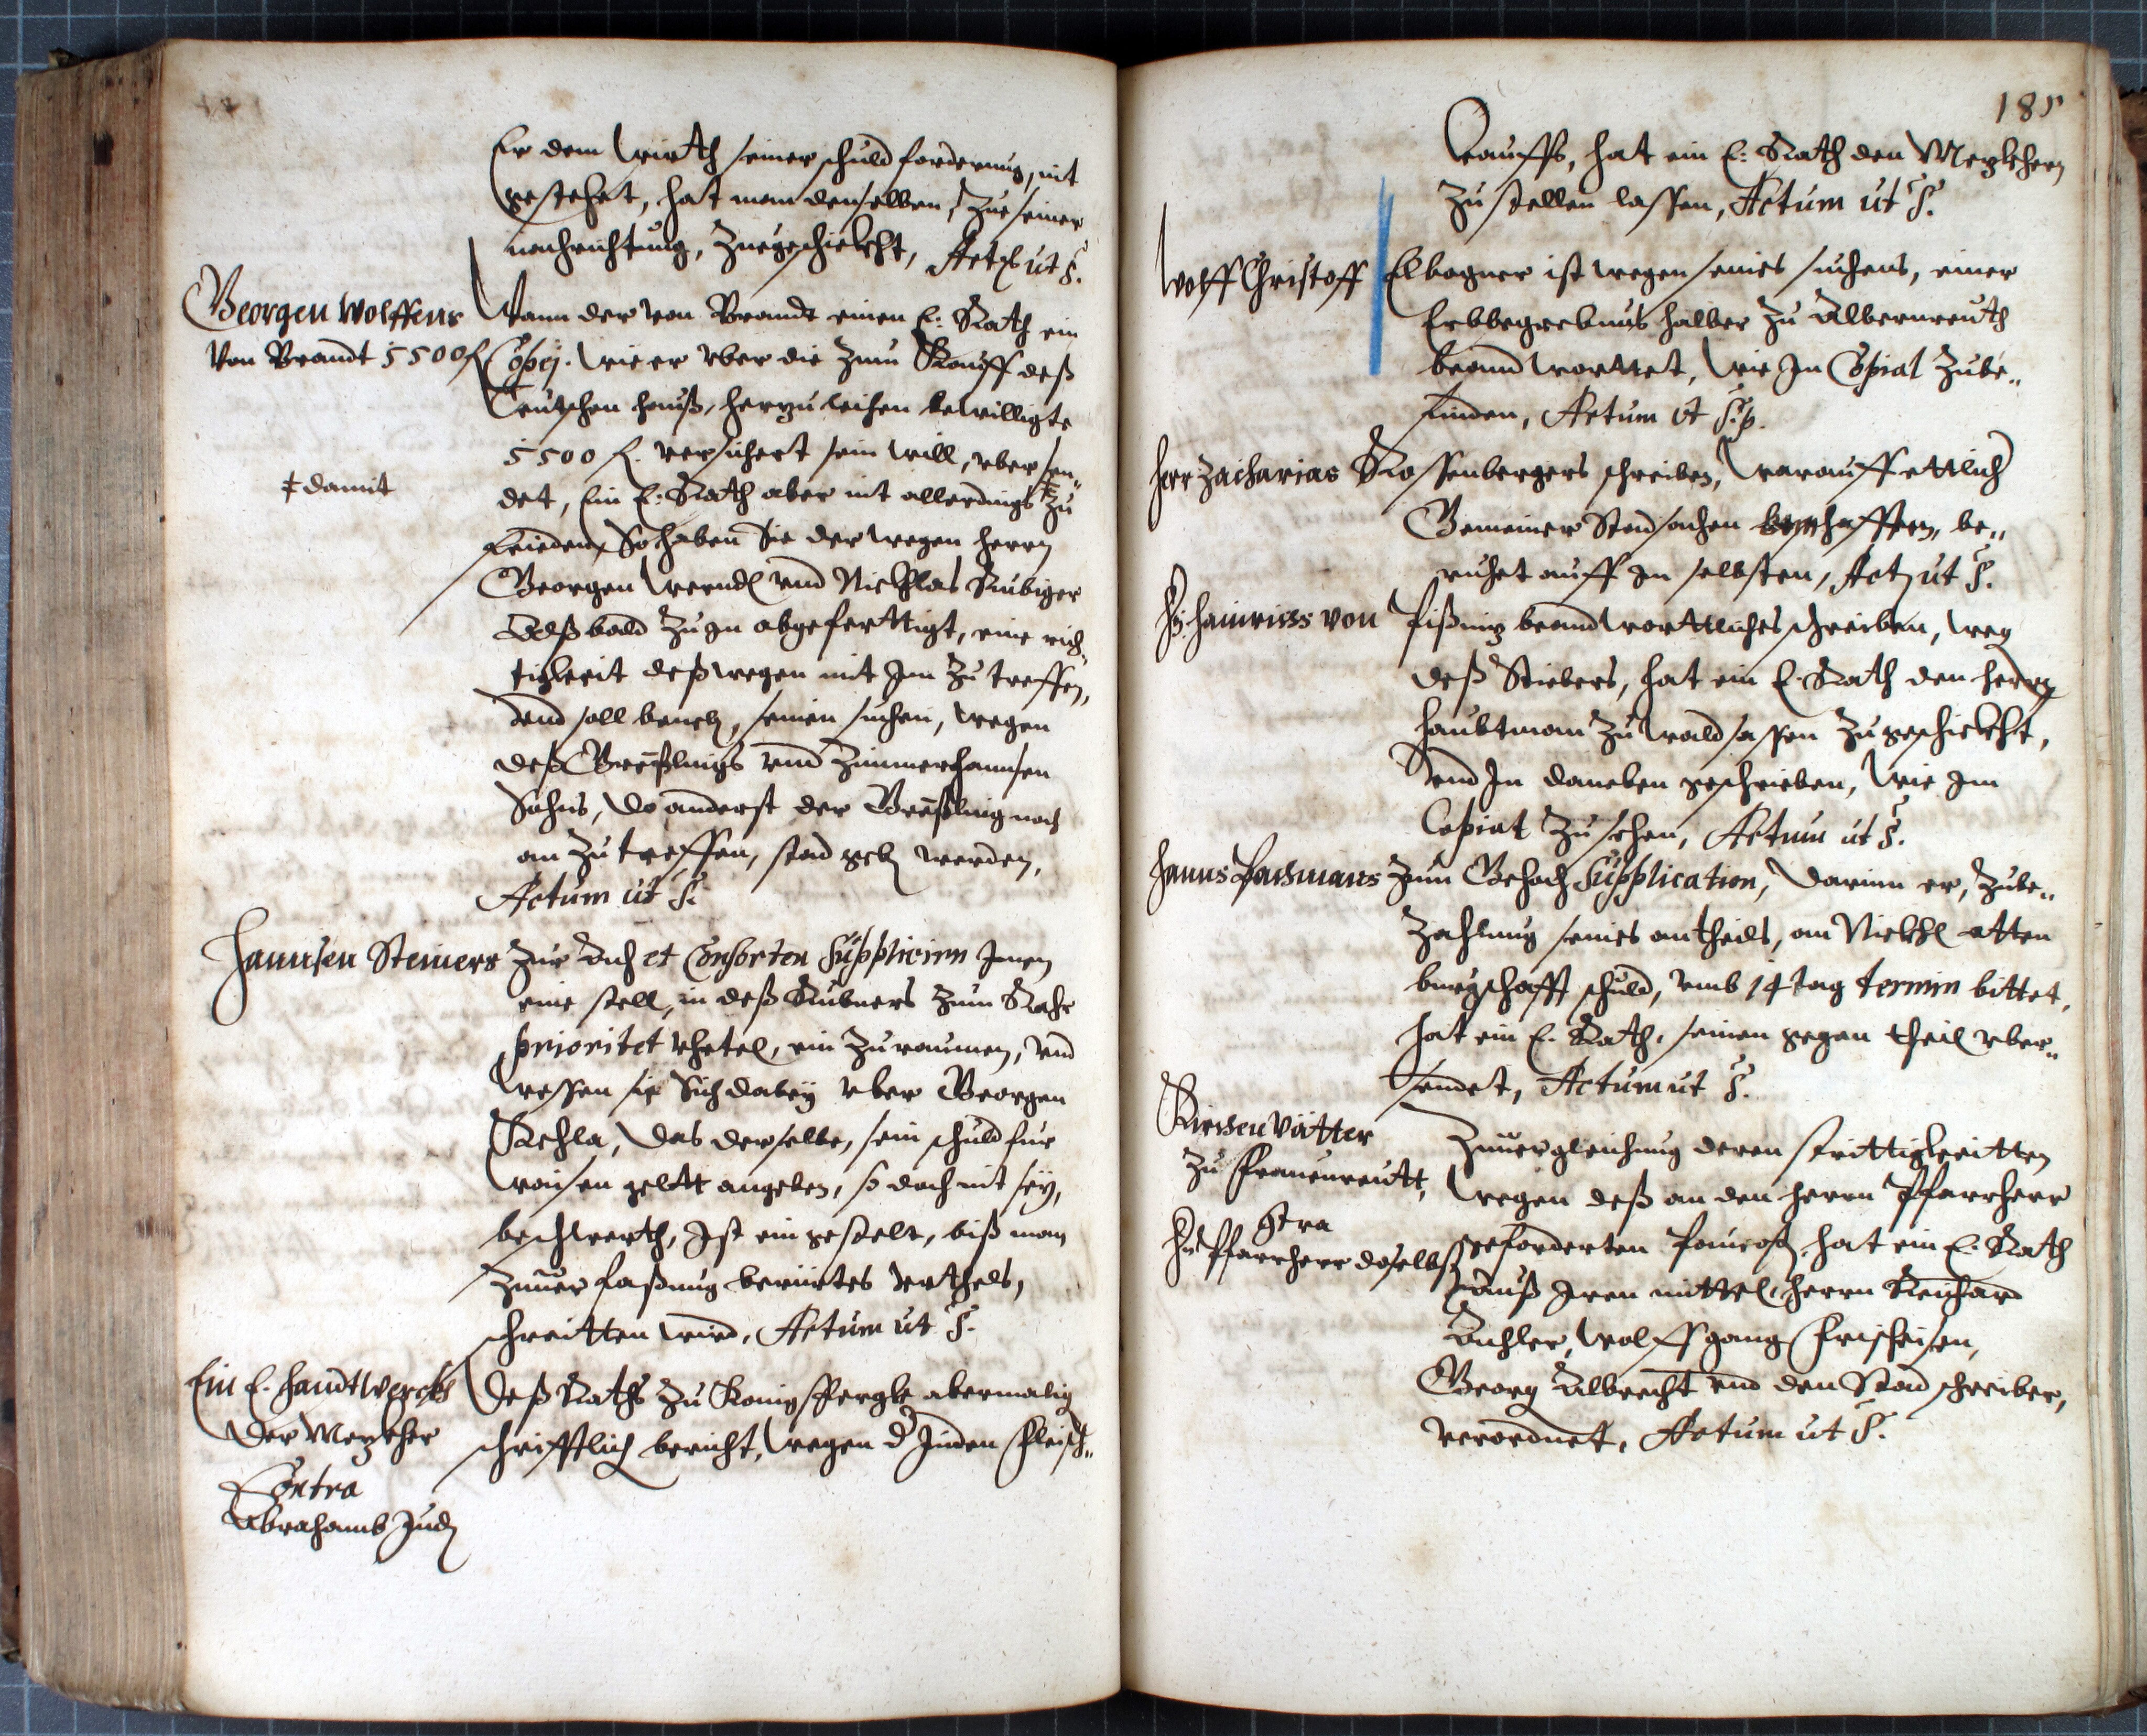 Er dem Wirth seiner schuld forderung, nit
gestehet, hat man denselben, zue seiner
nachrichtung, zuegeschickht, Act: ut S.
Georgen Wolffens
Von Brandt 5500 fl
Wann der von Brandt einen E: Rath ein
Copej. wie er vber die zum Kauff deß
Teutschen hauß, herzu leihen bewilligte
5500 fl. versichert sein will, vbersen„
‡ damit
det, Ein E: Rath aber nit allerdings ‡ zu
frieden, So haben Sie derwegen herrn
Georgen Werndl vnd Nickhlas Rubiger
Alßbald zu Jm abgeferttigt, eine rich„
tigkeit deßwegen mit Jm zu treffen,
Vnd soll seinen suchen, wegen
deß Greßlings vnd Zimmerhannsen
Sohns, do anderst der Greßling noch
an zu treffen, stad geben werden,
Actum ut S.
Hannsen Steiners zur Aich et Consorten Supplicirn Jnen
eine stell, in deß Rubners zum Rahr
prioritet Vhrtel, ein zuraumen, vnd
wessen sie Sich dabey vber Georgen
Kehla, das derselbe, sein schuld fur
waisen geltt angeben, so doch nit sey,
beschwerth, Jst ein gestelt, biß man
zuuer faßung beruertes Vrthels,
schreitten wird, Actum ut S.
Ein E. handtwercks
der Mezkher
Contra
Abrahamb Jude
Deß Raths zu Konigspergk abermalig
schrifftlich bericht, wegen d. Juden fleisch„
185
kauffs, hat ein E: Rath den Mezkhern
zustellen lassen, Actum ut S.
Wolff Christoff Elbogner ist wegen seines suchens, einer
Erbbegrebnus halber zu Albernreuth
beandwortet, wie Jn Copial zube„
finden, Actum ut S.
Herr Zacharias Rossenbergers schreiben, warauff ettlich
Gemeiner Stadsachen be„
ruhet auff im selbsten, Act: ut S.
Hr: Hainrichs von beandworttliches schreiben, weg
deß Stiebers, hat ein E. Rath den herrn
haubtman zu Waldsassen zugeschickht,
Vnd Jn daneben geschrieben, wie Jm
Copiat zu sehen, Actum ut S.
Hanns zum Gehach Supplication, darinn er, zube„
zahlung seines antheils, an Nickhl
burgschafft schuld, vmb 14 tag termin bittet,
hat ein E. Rath, seinen gegen theil vber„
sendet, Actum ut S.
Kirchen Vätter
zu Frauenreutt,
Contra
Hr Pfarrherr daselbst
Zuuergleichung deren strittigkeitten
wegen deß an den herrn Pfarrherr
geforderten hat ein E. Rath
auß Jren mittel, herrn
Wolffgang
Georg Albrecht vnd den Stadschreiber,
verordnet, Actum ut S.